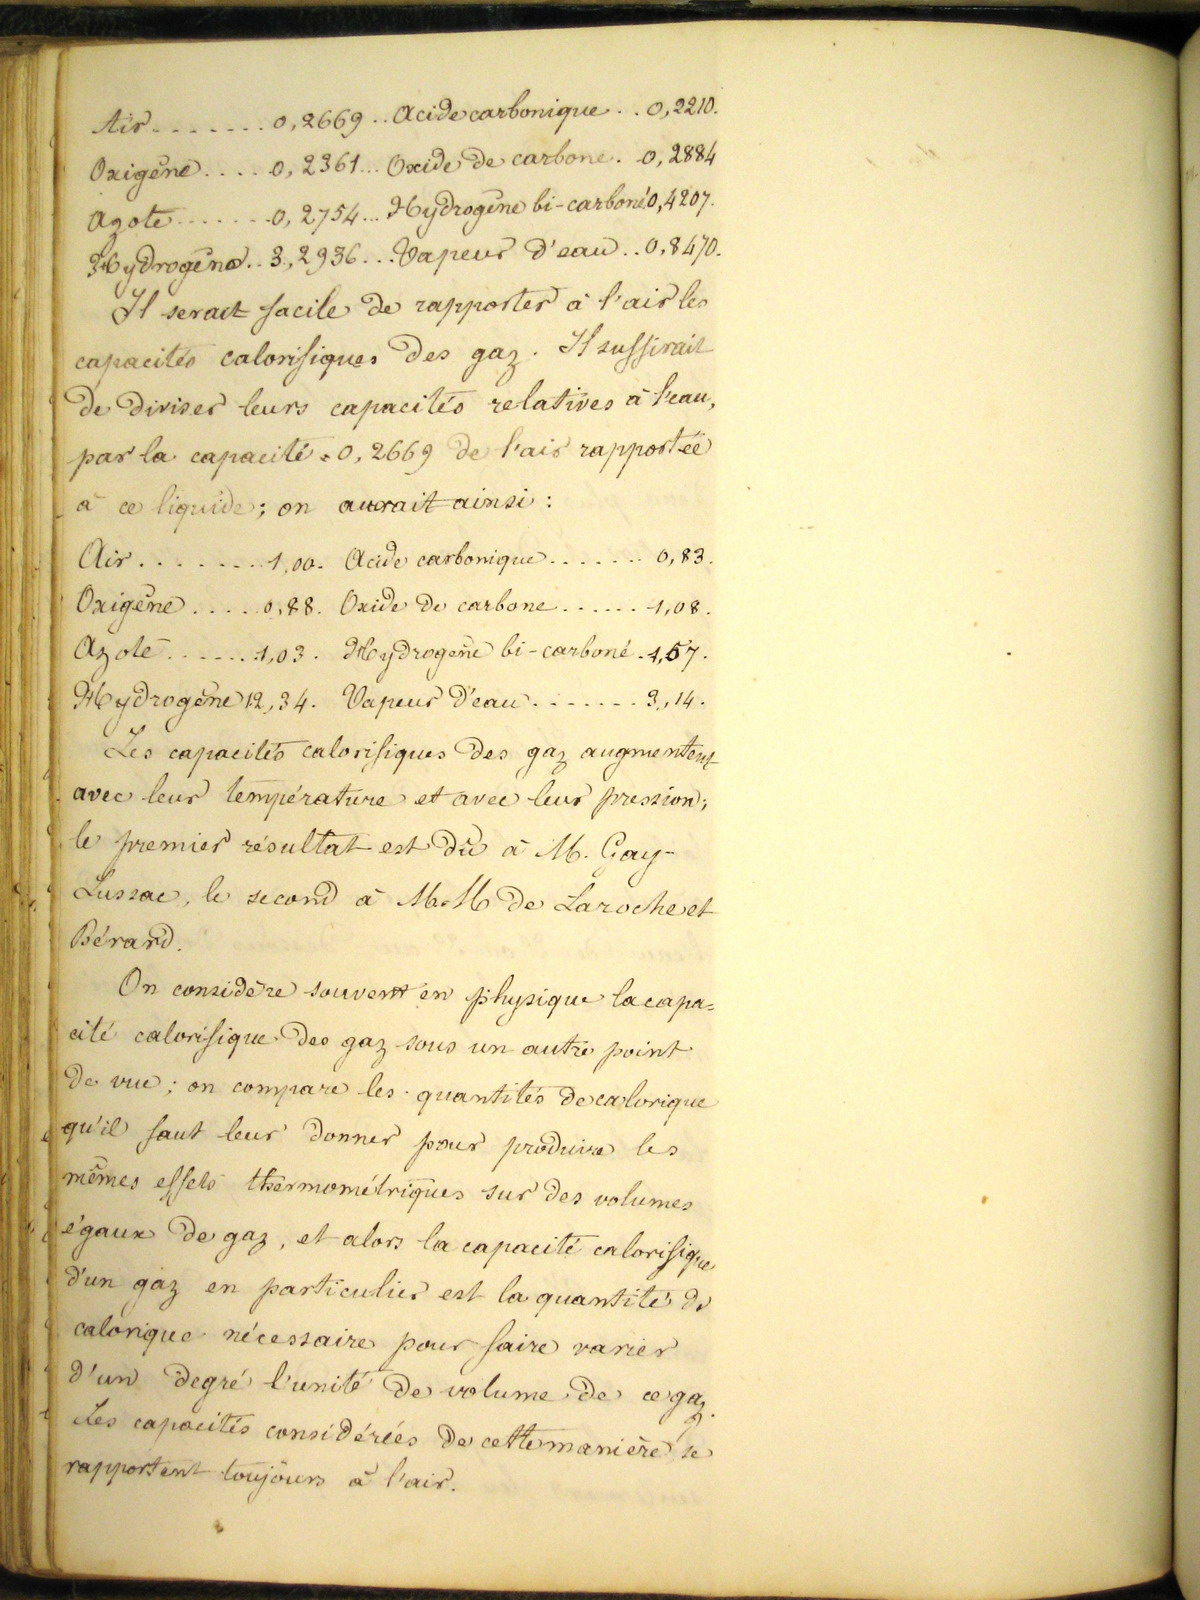 Air........0,2669..Acide carbonique..0,2210.
Oxigène....0,2361...Oxide de carbone.0,2884
Azote.......0,2754...Hydrogène bi-carboné 0,4207.
Hydrogène..3,2936...Vapeur d'eau..0,8470.
Il serait facile de rapporter à l'air les
capacités calorifiques des gaz. Il suffirait
de diviser leurs capacités relatives à l'eau,
par la capacité = 0,2669 de l'air rapportée
à ce liquide; on aurait ainsi:
Air........1,00. Acide carbonique.......0,83.
Oxigène.....0,88. Oxide de carbone......1,08.
Azote......1,03. Hydrogène bi-carboné.1,57.
Hydrogène 12,34. Vapeur d'eau.......3,14.
Les capacités calorifiques des gaz augmentent
avec leur température et avec leur pression;
le premier résultat est dû à M. Gay-
Lussac, le second à M.M de Laroche et
Bérard.
On considère souvent en physique la capa=
cité calorifique des gaz sous un autre point
de vue; on compare les quantités de calorique
qu'il faut leur donner pour produire les
mêmes effets thermométriques sur des volumes
égaux de gaz, et alors la capacité calorifique
d'un gaz en particulier est la quantité de
calorique nécessaire pour faire varier
d'un degré l'unité de volume de ce gaz.
Les capacités considérées de cette manière se
rapportent toujours à l'air.